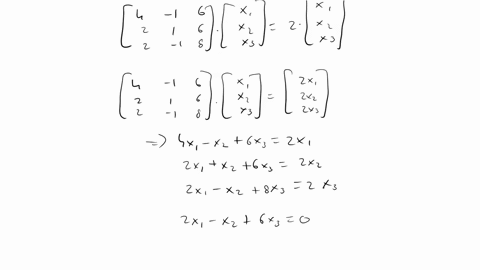 [4 -1 6; 2 1 6; 2 -1 8] · [x₁; x₂; x₃] = 2 · [x₁; x₂; x₃]
[4 -1 6; 2 1 6; 2 -1 8] · [x₁; x₂; x₃] = [2x₁; 2x₂; 2x₃]
=> 4x₁ - x₂ + 6x₃ = 2x₁
2x₁ + x₂ + 6x₃ = 2x₂
2x₁ - x₂ + 8x₃ = 2x₃
2x₁ - x₂ + 6x₃ = 0